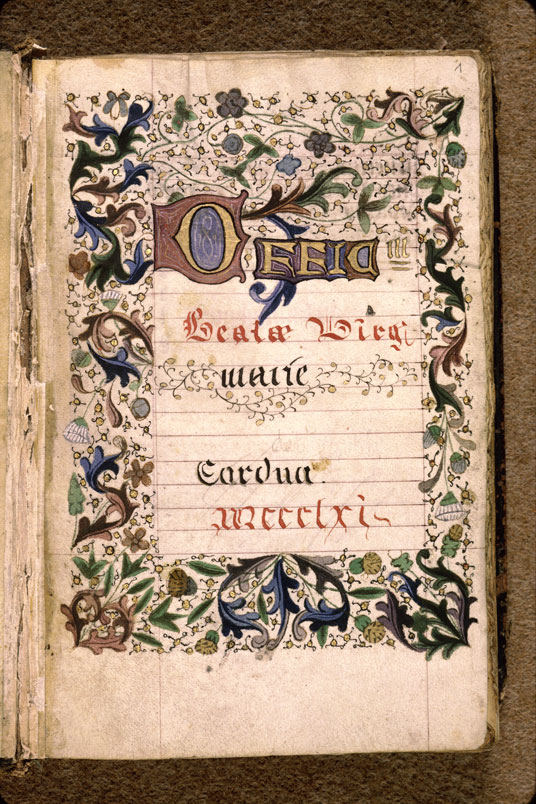 1
OFFICIUM
Beatæ Virg
marie
Cardua.
MCCCCLXI